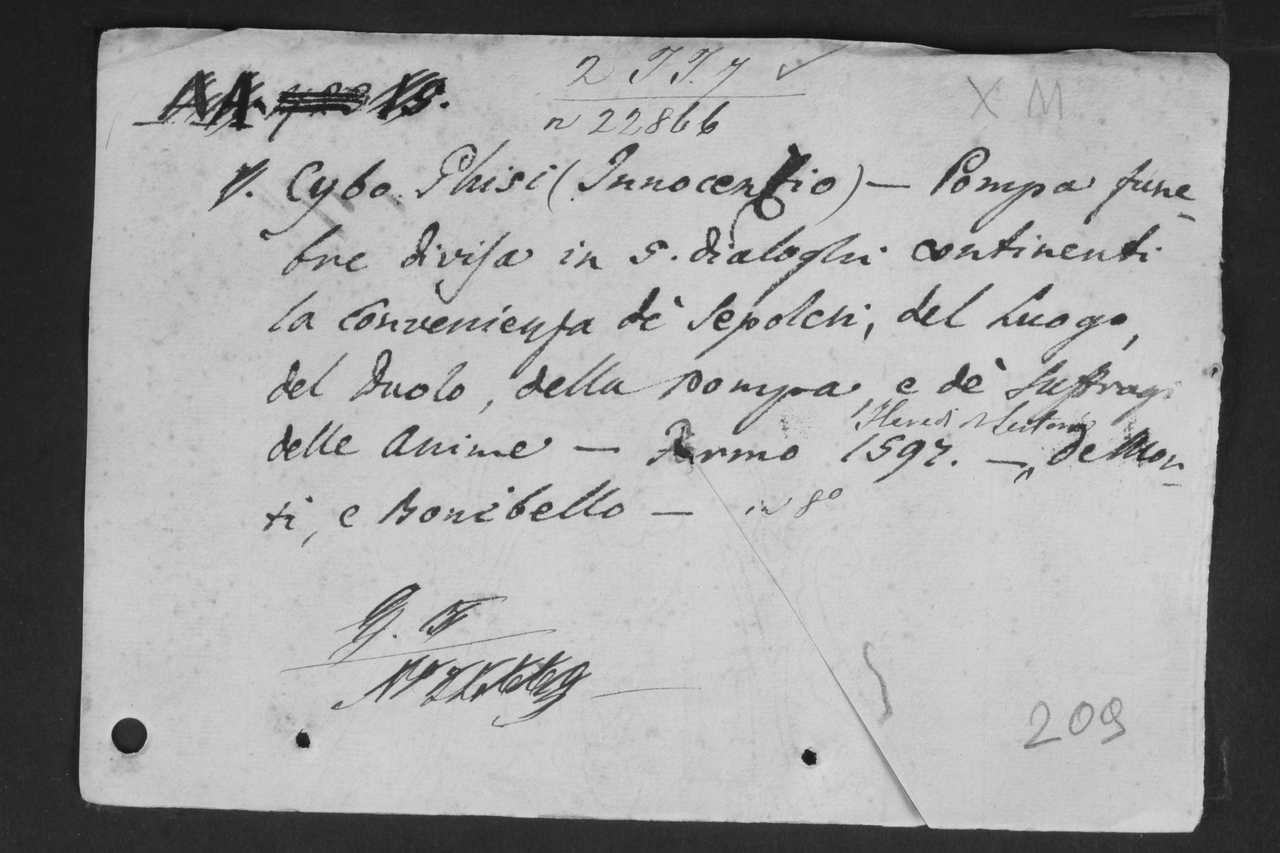 2 T T. 7 ✓
n 22866
X M
Cybo Ghisi (Innocenzio) — Pompa fune-
bre divisa in 5. dialoghi continenti
la Convenienza de' Sepolcri, del Luogo,
del Duolo, della Pompa, e de' Suffragi
delle Anime — Fermo 1597. — de Mon-
ti, e Bonibello — in 8º
G.
209